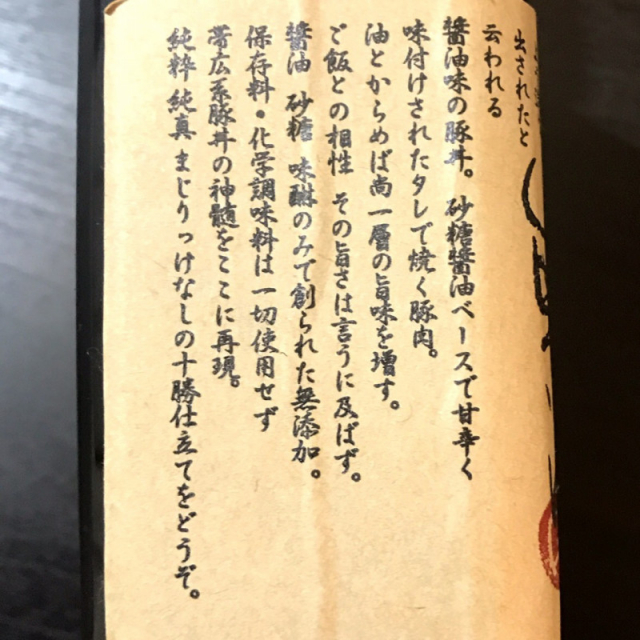 出されたと
云われる
醬油味の豚丼。砂糖醬油ベースで甘辛く
味付けされたタレで焼く豚肉。
油とからめば尚一層の旨味を増す。
ご飯との相性 その旨さは言うに及ばず。
醬油 砂糖 味醂のみで創られた無添加。
保存料・化学調味料は一切使用せず
帯広系豚丼の神髄をここに再現。
純粋 純真 まじりっけなしの十勝仕立てをどうぞ。